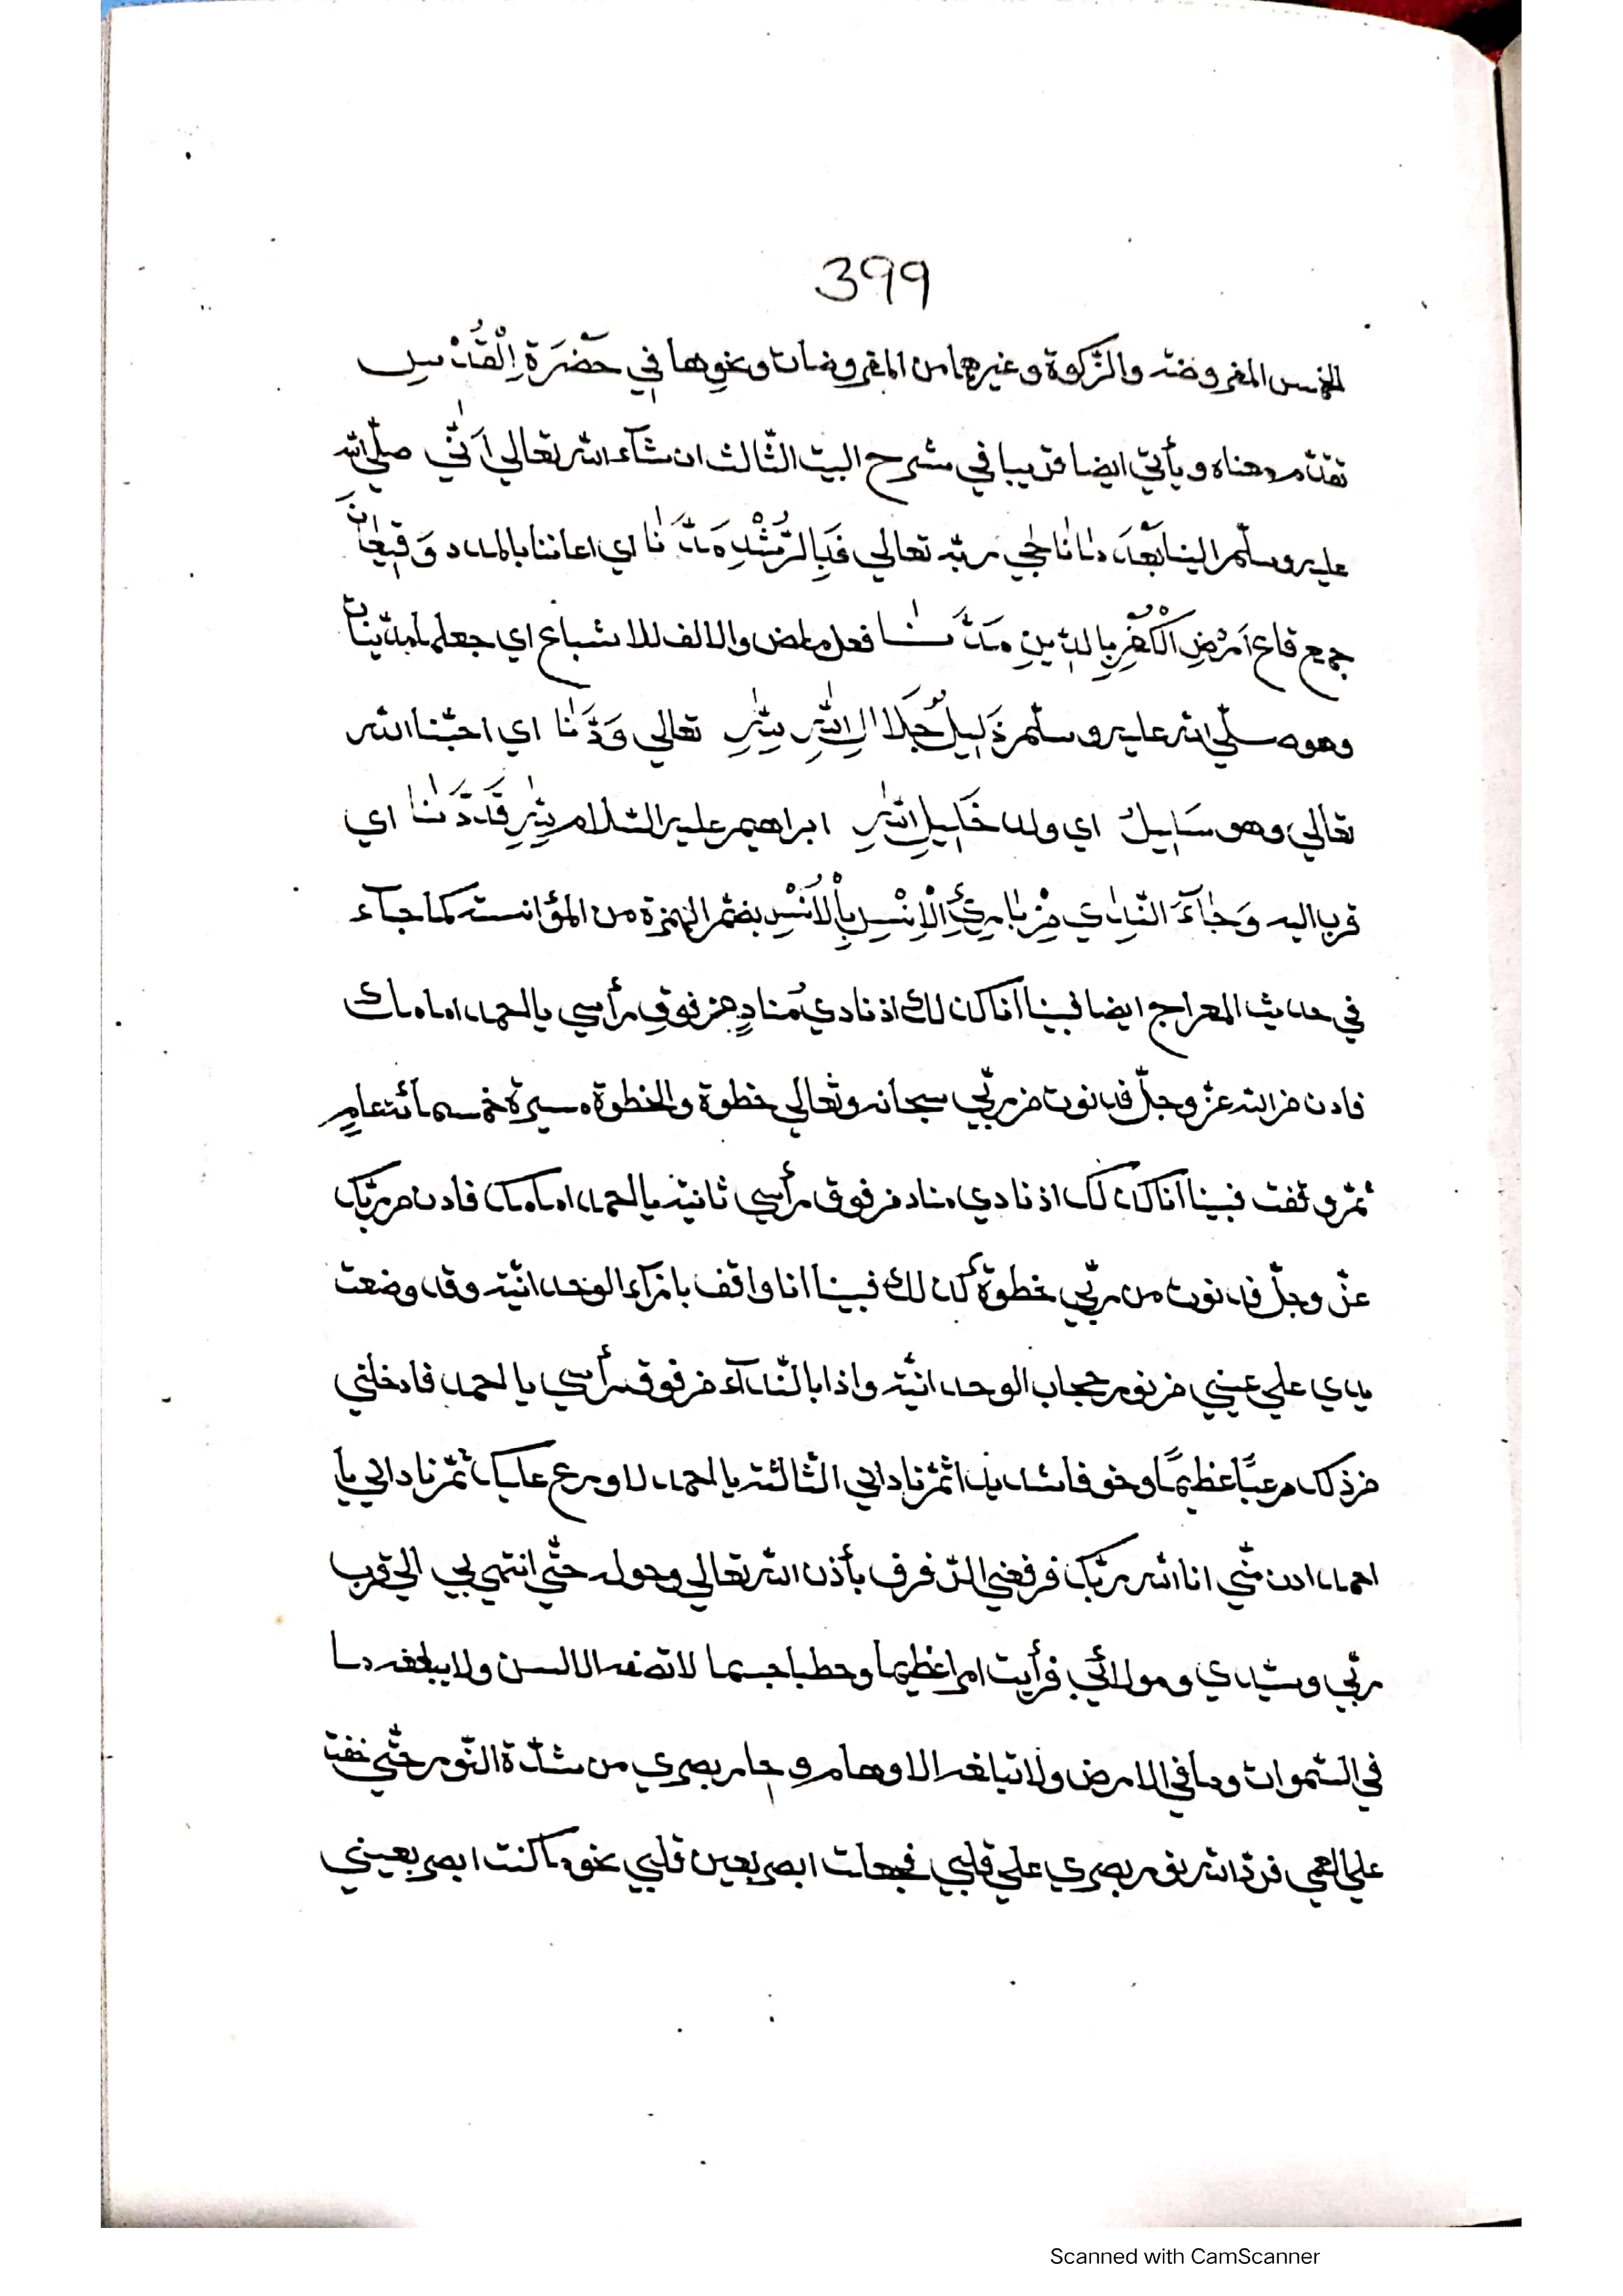 399
الخمس المفروضة والزّكوة وغيرها من المفروضات ونحوها في حَضْرَةِ الْقُدْسِ
تقدّم معناه ويأتي ايضا قريبا في شرح البيت الثّالث ان شآء الله تعالي اَتٰي صلّي الله
عليه وسلّم الينا بَعْدَ مَا نَاجٰي ربّه تعالي فَبِالرُّشْدِ مَدَّنَا اي اعاننا بالمدد وَقِيعَانَ
جمع قاع اَرْضِ الْكُفْرِ بِالدِّينِ مَدَّنَا فعل ماض والالف للاشباع اي جعلها مدينات
وهو صلّي الله عليه وسلّم دَلِيلٌ جَلَا اِلَي اللهِ لِلّٰهِ تعالي وَدَّنَا اي احبّنا الله
تعالي وهو سَلِيلُ اي ولد خَلِيلِ اللهِ ابراهيم عليه السّلام لِلّٰهِ قَدْ دَنَا اي
قرب اليه وَجَآءَ النِّدَاي مِنْ بَارِئِ الْاِنْسِ بِالْاُنْسِ بضمّ الهمزة من المؤانسة كما جآء
في حديث المعراج ايضا فبينا انا كذلك اذ نادي مُنادٍ من فوقِ رأسي يا احمد امامك
فادن من الله عزّ وجلّ فدنوت من ربّي سبحانه وتعالي خطوة والخطوة مسيرة خمسمائة عامٍ
ثمّ وقفت فبينا انا كذلك اذ نادي مناد من فوق رأسي ثانية يا احمد امامك فادن من ربّك
عزّ وجلّ فدنوت من ربّي خطوة كذلك فبينا انا واقف بازآء الوحدانيّة وقد وضعت
يدي علي عيني من نور حجاب الوحدانيّة واذا بالنّدآء من فوق رأسي يا احمد فادخلني
من ذلك رعبًا عظيمًا وخوفا شديدا ثمّ ناداني الثّالثة يا احمد لا روع عليك ثمّ ناداني يا
احمد ادن منّي انا الله ربّك فرفعني الرّفرف بأذن الله تعالي وحوله حتّي انتهي بي الي قرب
ربّي وسيّدي ومولائي فرأيت امرا عظيما وخطبا جسيما لا تصفه الالسن ولا يبلغه ما
في السّموات وما في الارض ولا تبلغه الاوهام و حار بصري من شدّة النّور حتّي خفت
علي العمي فردّ الله نور بصري علي قلبي فجعلت ابصر بعين قلبي نحو ما كنت ابصر بعيني
Scanned with CamScanner